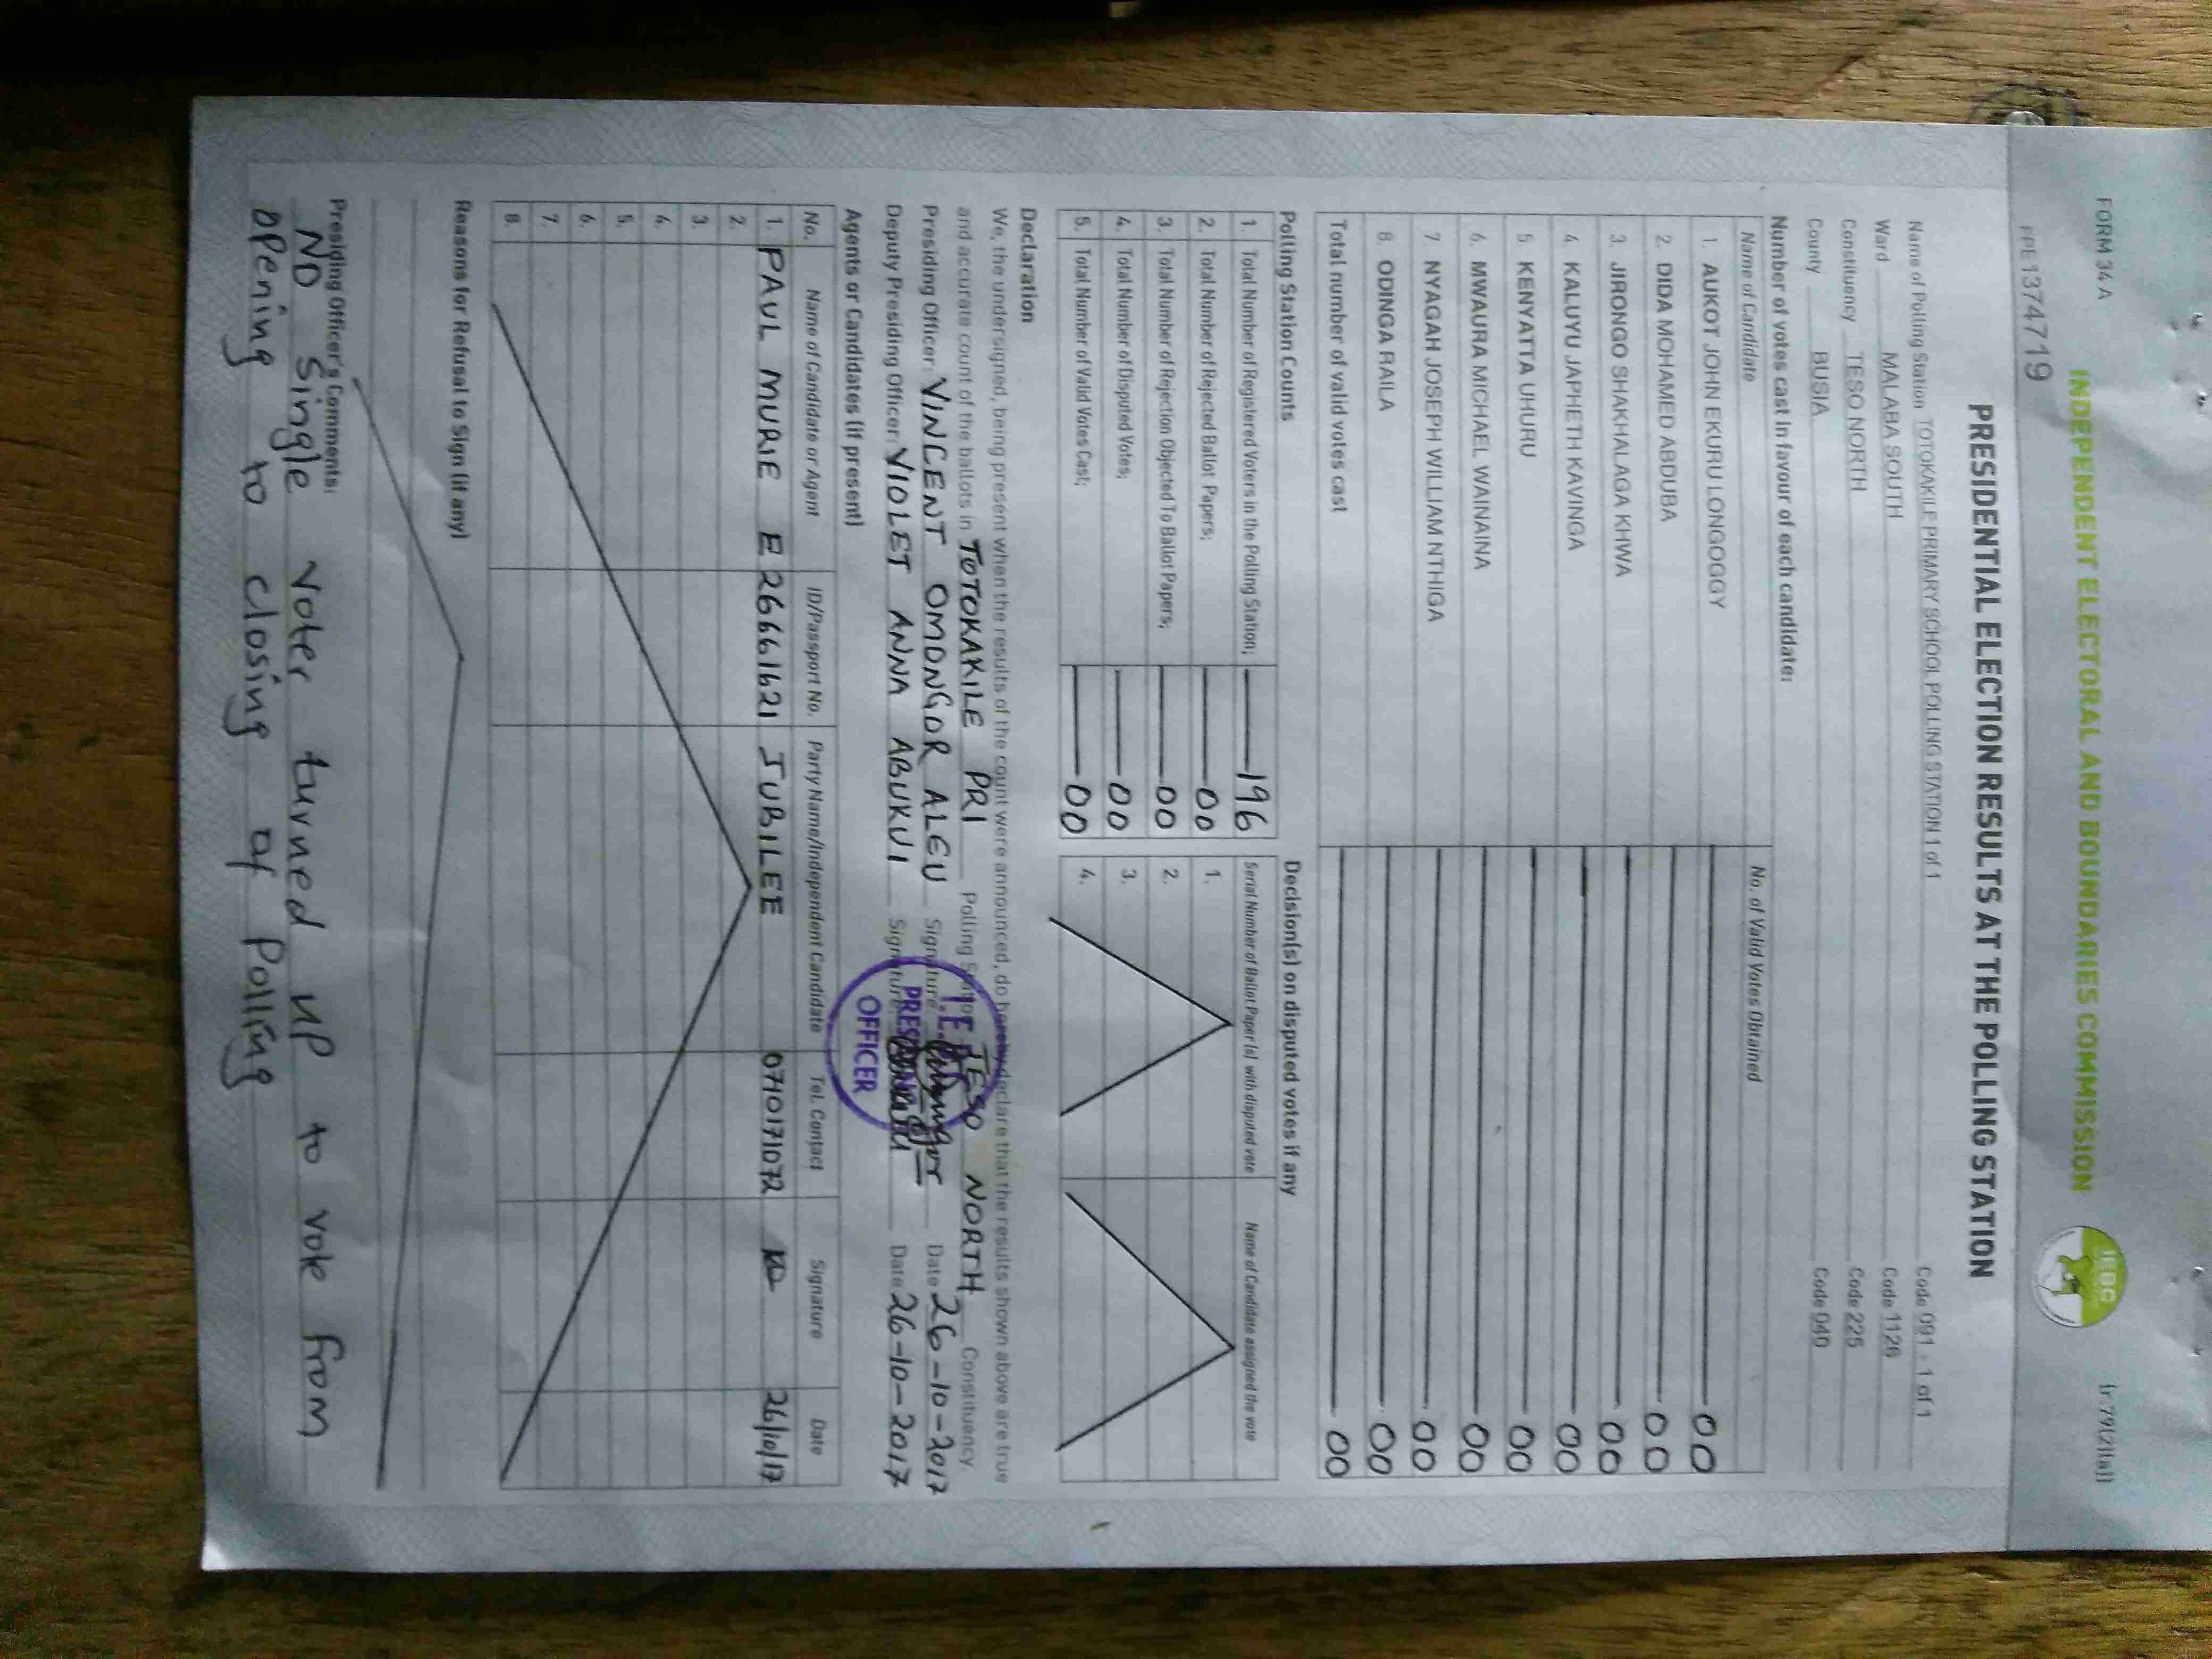 FORM 34 A
(r.79(2)(a))
INDEPENDENT ELECTORAL AND BOUNDARIES COMMISSION
IEBC
FPE1374719
PRESIDENTIAL ELECTION RESULTS AT THE POLLING STATION
Name of Polling Station TOTOKAKILE PRIMARY SCHOOL POLLING STATION 1 of 1 Code 091 - 1 of 1
Ward MALABA SOUTH Code 1126
Constituency TESO NORTH Code 225
County BUSIA Code 040
Number of votes cast in favour of each candidate:
Name of Candidate No. of Valid Votes Obtained
1. AUKOT JOHN EKURU LONGOGGY 00
2. DIDA MOHAMED ABDUBA 00
3. JIRONGO SHAKHALAGA KHWA 00
4. KALUYU JAPHETH KAVINGA 00
5. KENYATTA UHURU 00
6. MWAURA MICHAEL WAINAINA 00
7. NYAGAH JOSEPH WILLIAM NTHIGA 00
8. ODINGA RAILA 00
Total number of valid votes cast 00
Polling Station Counts
1. Total Number of Registered Voters in the Polling Station; 196
2. Total Number of Rejected Ballot Papers; 00
3. Total Number of Rejection Objected To Ballot Papers; 00
4. Total Number of Disputed Votes; 00
5. Total Number of Valid Votes Cast; 00
Decision(s) on disputed votes if any
Serial Number of Ballot Paper (s) with disputed vote Name of Candidate assigned the vote
1.
2.
3.
4.
Declaration
We, the undersigned, being present when the results of the count were announced, do hereby declare that the results shown above are true
and accurate count of the ballots in TOTOKAKILE PRI Polling Station TESO NORTH Constituency
Presiding Officer: VINCENT OMONGOR ALEU Signature Date 26-10-2017
Deputy Presiding Officer: VIOLET ANNA ABUKUI Signature Date 26-10-2017
PRESIDING
OFFICER
Agents or Candidates (if present)
No. Name of Candidate or Agent ID/Passport No. Party Name/Independent Candidate Tel. Contact Signature Date
1. PAUL MURIE E 26661621 JUBILEE 0710171072 26/10/17
2.
3.
4.
5.
6.
7.
8.
Reasons for Refusal to Sign (if any)
Presiding Officer's Comments:
NO single voter turned up to vote from
opening to closing of Polling